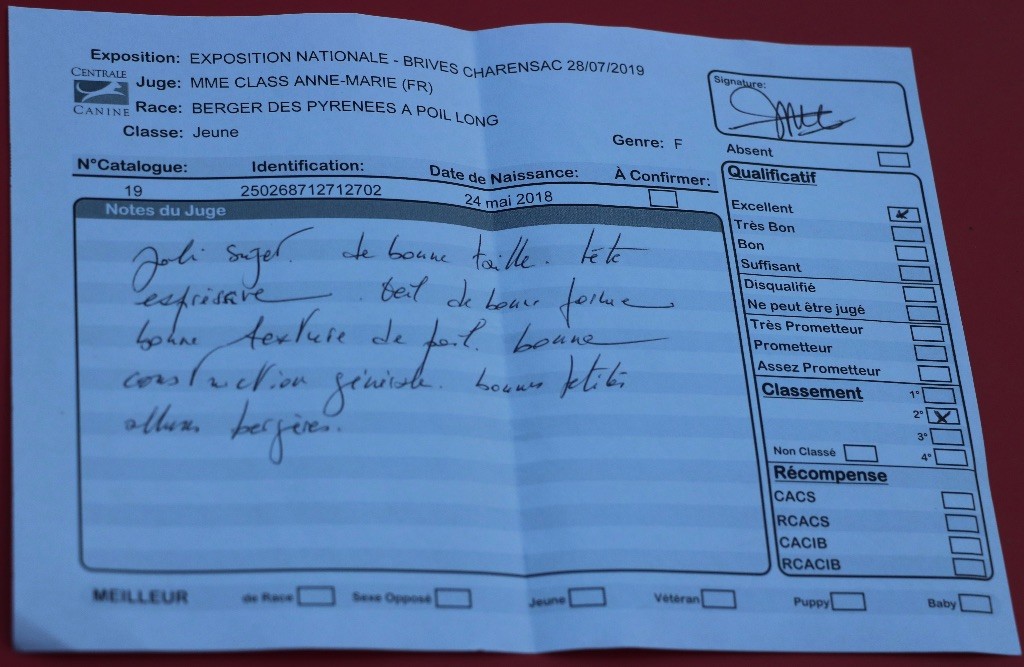 Exposition: EXPOSITION NATIONALE - BRIVES CHARENSAC 28/07/2019
CENTRALE CANINE
Juge: MME CLASS ANNE-MARIE (FR)
Race: BERGER DES PYRENEES A POIL LONG
Classe: Jeune
Genre: F
Signature:
N°Catalogue: Identification: Date de Naissance: À Confirmer:
19 250268712712702 24 mai 2018
Notes du Juge
Joli sujet. de bonne taille. tête
expressive. Oeil de bonne forme
bonne texture de poil. bonne
construction générale. bonnes petites
allures bergères.
Absent
Qualificatif
Excellent
Très Bon
Bon
Suffisant
Disqualifié
Ne peut être jugé
Très Prometteur
Prometteur
Assez Prometteur
Classement
1°
2°
3°
Non Classé 4°
Récompense
CACS
RCACS
CACIB
RCACIB
MEILLEUR de Race Sexe Opposé Jeune Vétéran Puppy Baby